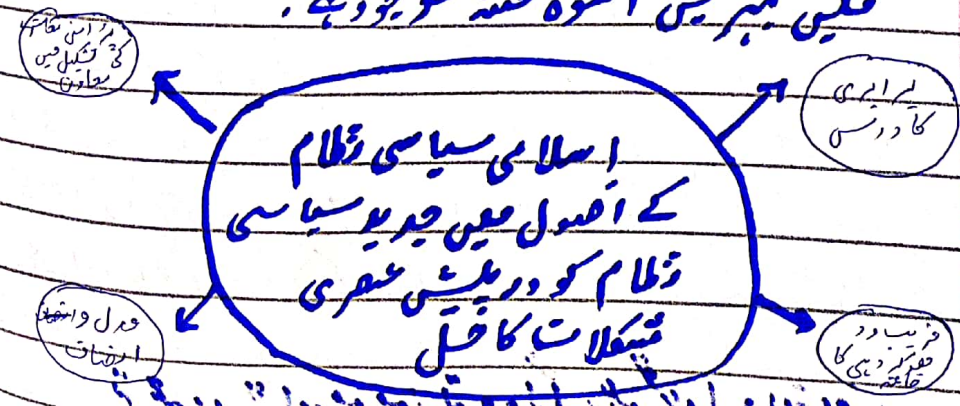 میں بہترین اسوہ حسنہ موجود ہے.
پر امن معاشرے
کی تشکیل میں
معاون
برابری
کا درس
اسلامی سیاسی نظام
کے اصول میں جدید سیاسی
نظام کو درپیش عصری
مشکلات کا حل
عدل و
انصاف
فریب اور
دھوکہ دہی کا
خاتمہ